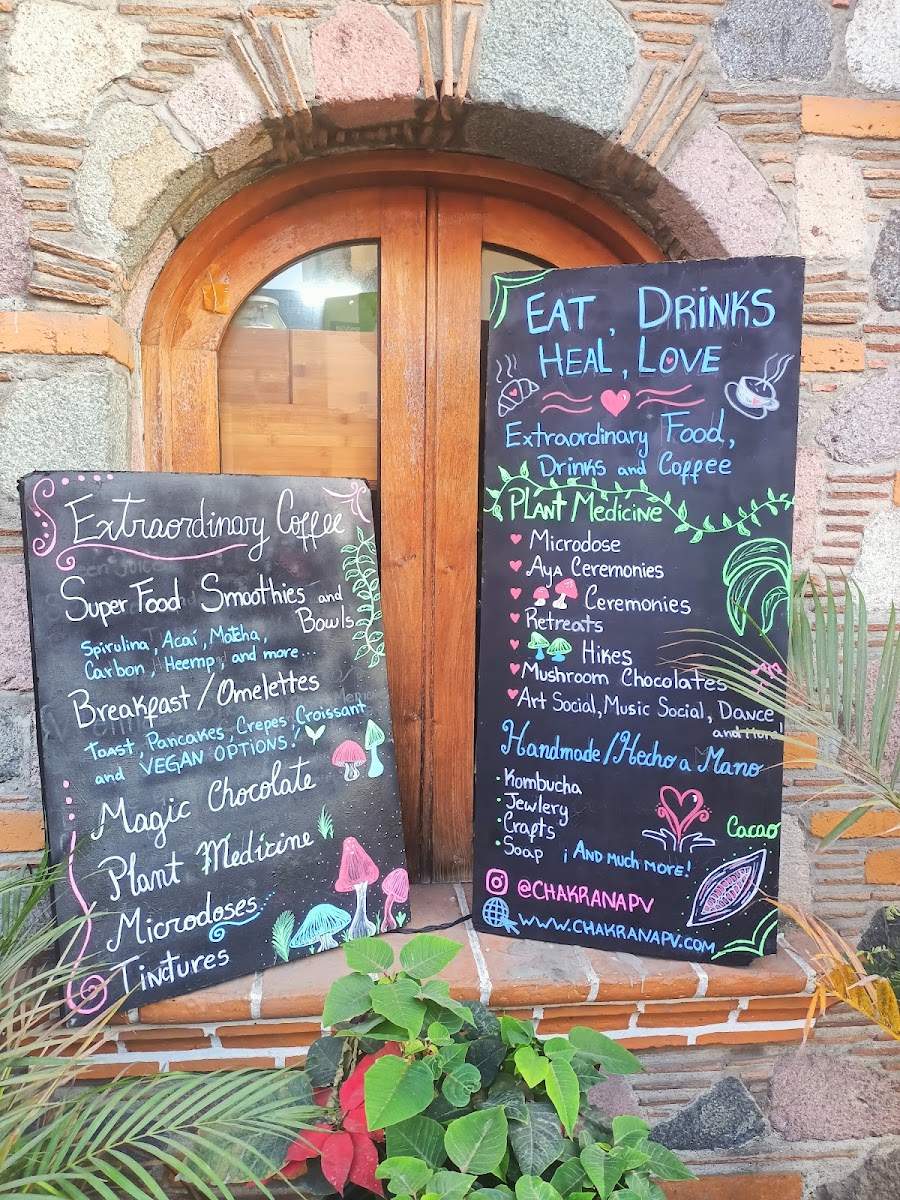 Extraordinary Coffee
Super Food Smoothies and
Bowls
Spirulina, Acaí, Matcha,
Carbon, Heemp, and more...
Breakfast/Omelettes
Toast, Pancakes, Crepes, Croissant
and VEGAN OPTIONS!
Magic Chocolate
Plant Medicine
Microdoses
Tinctures
EAT, DRiNKS
HEAL, LOVE
Extraordinary Food,
Drinks and Coffee
PLANT MEDiCINE
Microdose
AyA Ceremonies
Ceremonies
Retreats
Hikes
Mushroom Chocolates
Art Social, Music Social, Dance
and More!
Handmade/Hecho a Mano
Kombucha
Jewlery
Crafts
Soap
¡AND much more!
Cacao
@CHAKRANAPV
WWW.CHAKRANAPV.COM